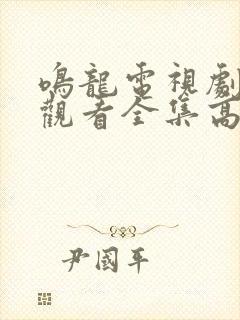 鳴龍電視劇
觀看全集高
尹國平